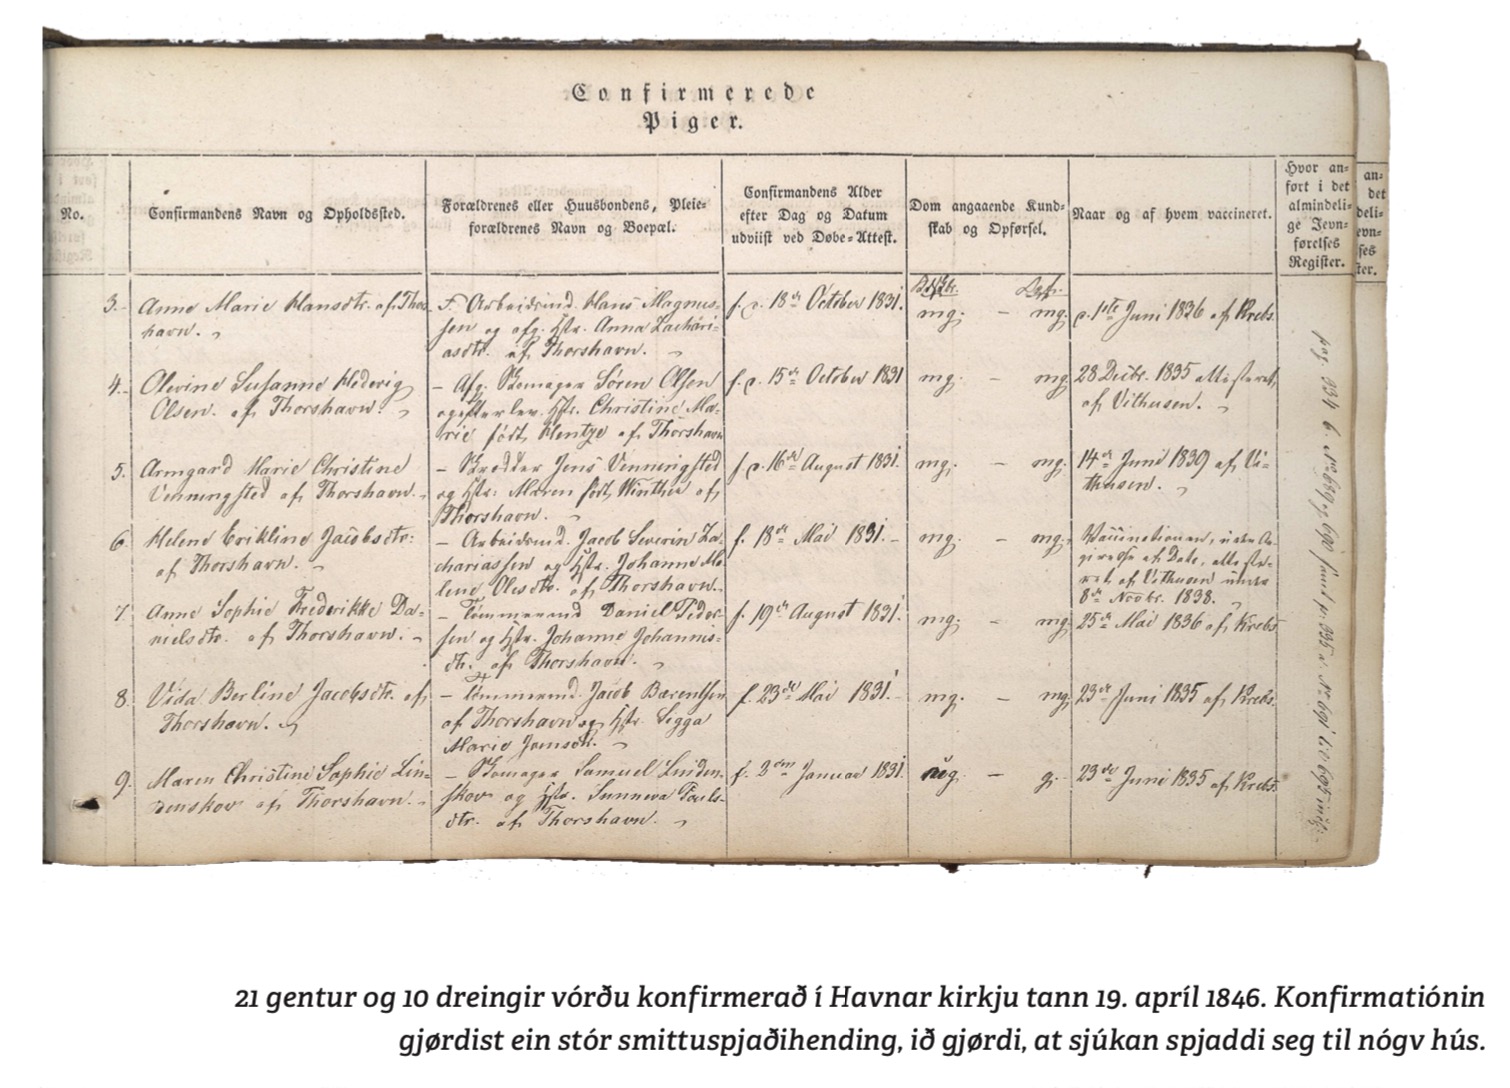 Confirmerede
Piger.
No.
Confirmandens Navn og Opholdssted.
Forældrenes eller Huusbondens, Pleie-
forældrenes Navn og Boepæl.
Confirmandens Alder
efter Dag og Datum
udviist ved Døbe-Attest.
Dom angaaende Kund-
skab og Opførsel.
Naar og af hvem vaccineret.
Hvor an-
ført i det
almindeli-
ge Jevn-
førelses
Register.
an-
det
deli-
evn-
ses
ter.
3.
Anne Marie Hansdtr. af Thors
havn.
F. Arbeidsmd. Hans Magnus-
sen og afg. Hstr. Anna Zachari-
asdtr. af Thorshavn.
f. c. 18de October 1831.
mg. - mg.
c. 1ste Juni 1836 af Krebs.
4.
Olevine Susanne Hedevig
Olsen. af Thorshavn.
- Afg. Skomager Søren Olsen
og efterlev. Hstr. Christine Ma-
rie født Hentze af Thorshavn
f. c. 15de October 1831
mg. - mg.
28 Decbr. 1835 attesteret
af Vithusen.
5.
Armgard Marie Christine
Venningsted af Thorshavn.
- Skrædder Jens Venningsted
og Hstr. Maren født Winther af
Thorshavn.
f. c. 16de August 1831.
mg. - mg.
14de Juni 1839 af Vi-
thusen.
6.
Helene Erikline Jacobsdtr.
af Thorshavn.
- Arbeidsmd. Jacob Severin Za-
chariassen og Hstr. Johanne Ma-
lene Olesdtr. af Thorshavn.
f. 18de Mai 1831.-
mg. - mg.
Vaccinationen, uden An-
givelse af Dato, atteste-
ret af Vithusen under
8de Novbr. 1838.
7.
Anne Sophie Frederikke Da-
nielsdtr. af Thorshavn.
- Tømmermd Daniel Peder-
sen og Hstr. Johanne Johannis-
dtr. af Thorshavn.
f. 19de August 1831.
mg. - mg.
25de Mai 1836 af Krebs
8.
Vida Berline Jacobsdtr. af
Thorshavn.
- Tømmermd. Jacob Bærentsen
af Thorshavn og Hstr. Sigga
Marie Joensdtr.
f. 23de Mai 1831.-
mg. - mg.
23de Juni 1835 af Krebs.
9.
Maren Christine Sophie Lin-
denskov af Thorshavn.
- Skomager Samuel Linden-
skov og Hstr. Sunneva Pouls-
dtr. af Thorshavn.
f. 2den Januar 1831.
mg. - g.
23de Juni 1835 af Krebs
21 gentur og 10 dreingir vórðu konfirmerað í Havnar kirkju tann 19. apríl 1846. Konfirmatiónin
gjørdist ein stór smittuspjaðihending, ið gjørdi, at sjúkan spjaddi seg til nógv hús.